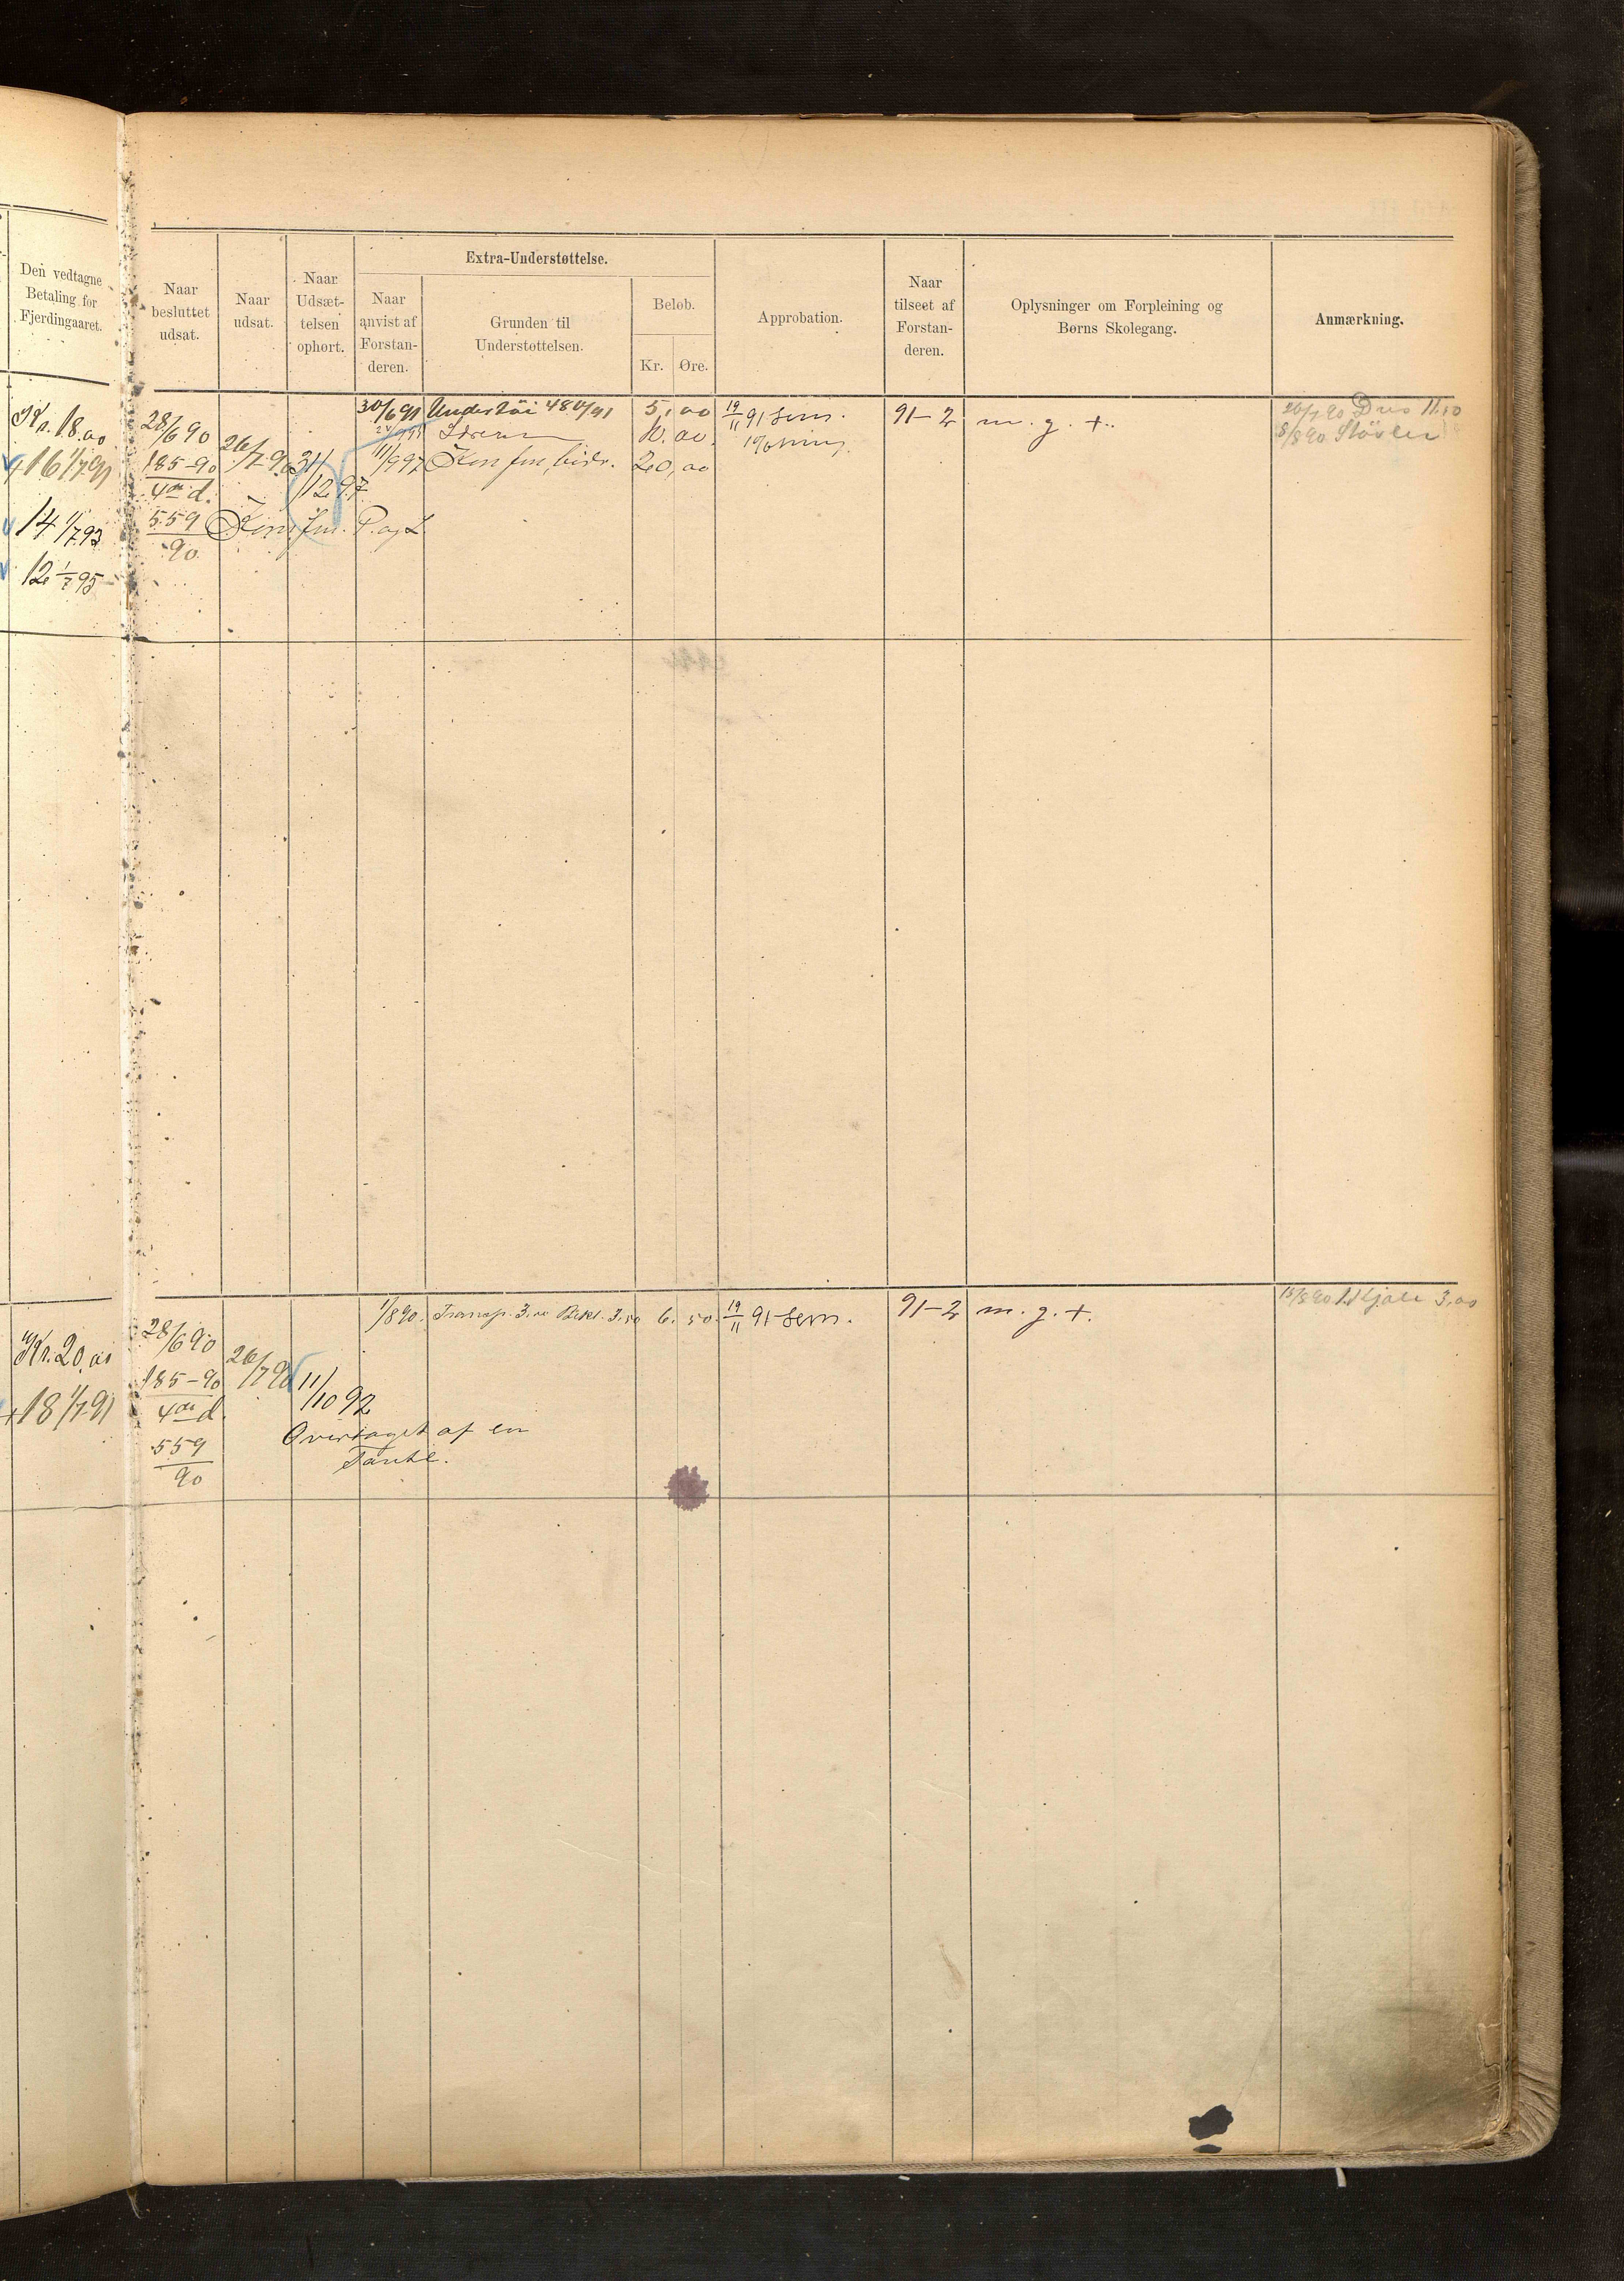 Den vedtagne
Betaling for
Fjerdingaaret.
Naar
besluttet
udsat.
Naar
udsat.
Naar
Udsæt-
telsen
ophørt.
Extra-Understøttelse.
Naar
anvist af
Forstan-
deren.
Grunden til
Understøttelsen.
Beløb.
Kr. Øre.
Approbation.
Naar
tilseet af
Forstan-
deren.
Oplysninger om Forpleining og
Børns Skolegang.
Anmærkning.
Kr. 18.00
+16 1/7 91
14 1/7 93
12 1/7 95
28/6 90
185-90
4de d.
559
90
26/7 90
31/12 97
Konfm. P. og L.
30/6 91 Undertøi 480/91 5,00
10.00
11/9 97 Konfm. bidr. 20,00
19/11 91 Sem.
91-2
m. g. +.
26/7 90 11.50
8/8 90 Støvler
Kr. 20,00
+18 1/7 91
28/6 90
185-90
4de d.
559
90
26/7 90
11/10 92
Overtaget af en
Tante.
1/8 90. Transp. 3,00 Bekl. 3,50 6.50
19/11 91 Sem.
91-2
m. g. +.
15/8 90 1 Kjole 3,00